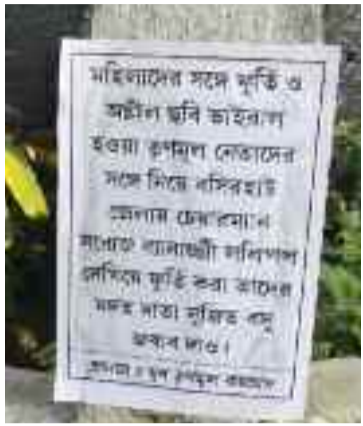 মহিলাদের সঙ্গে ফূর্তি ও
অশ্লীল ছবি ভাইরাল
হওয়া তৃণমূল নেতাদের
সঙ্গে নিয়ে বসিরহাট
জেলায় চেয়ারম্যান
সরোজ ব্যানার্জী
ফূর্তি করা তাদের
মদত দাতা সুজিত বসু
জবাব দাও।
তৃণমূল